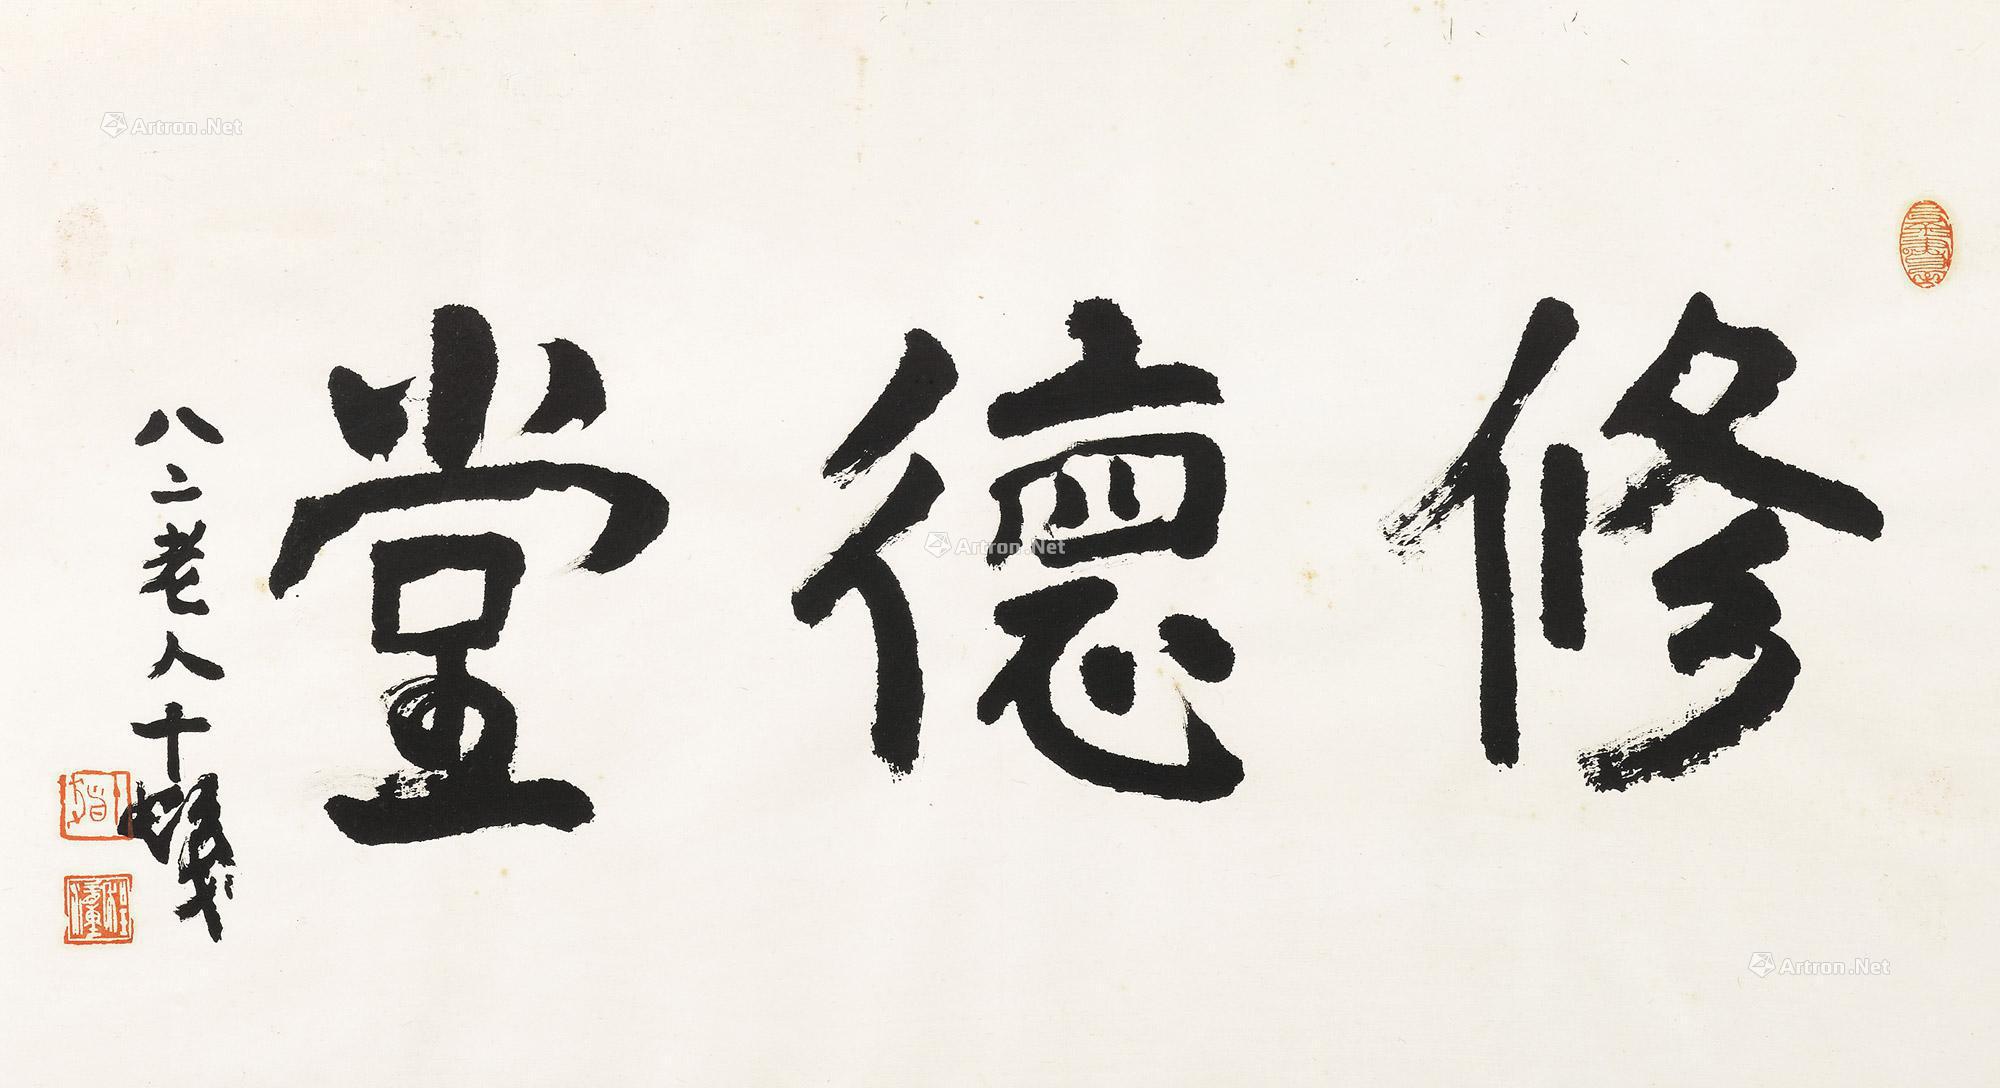 修德堂
八二老人十髮
程潼
Artron.Net
Artron.Net
Artron.Net